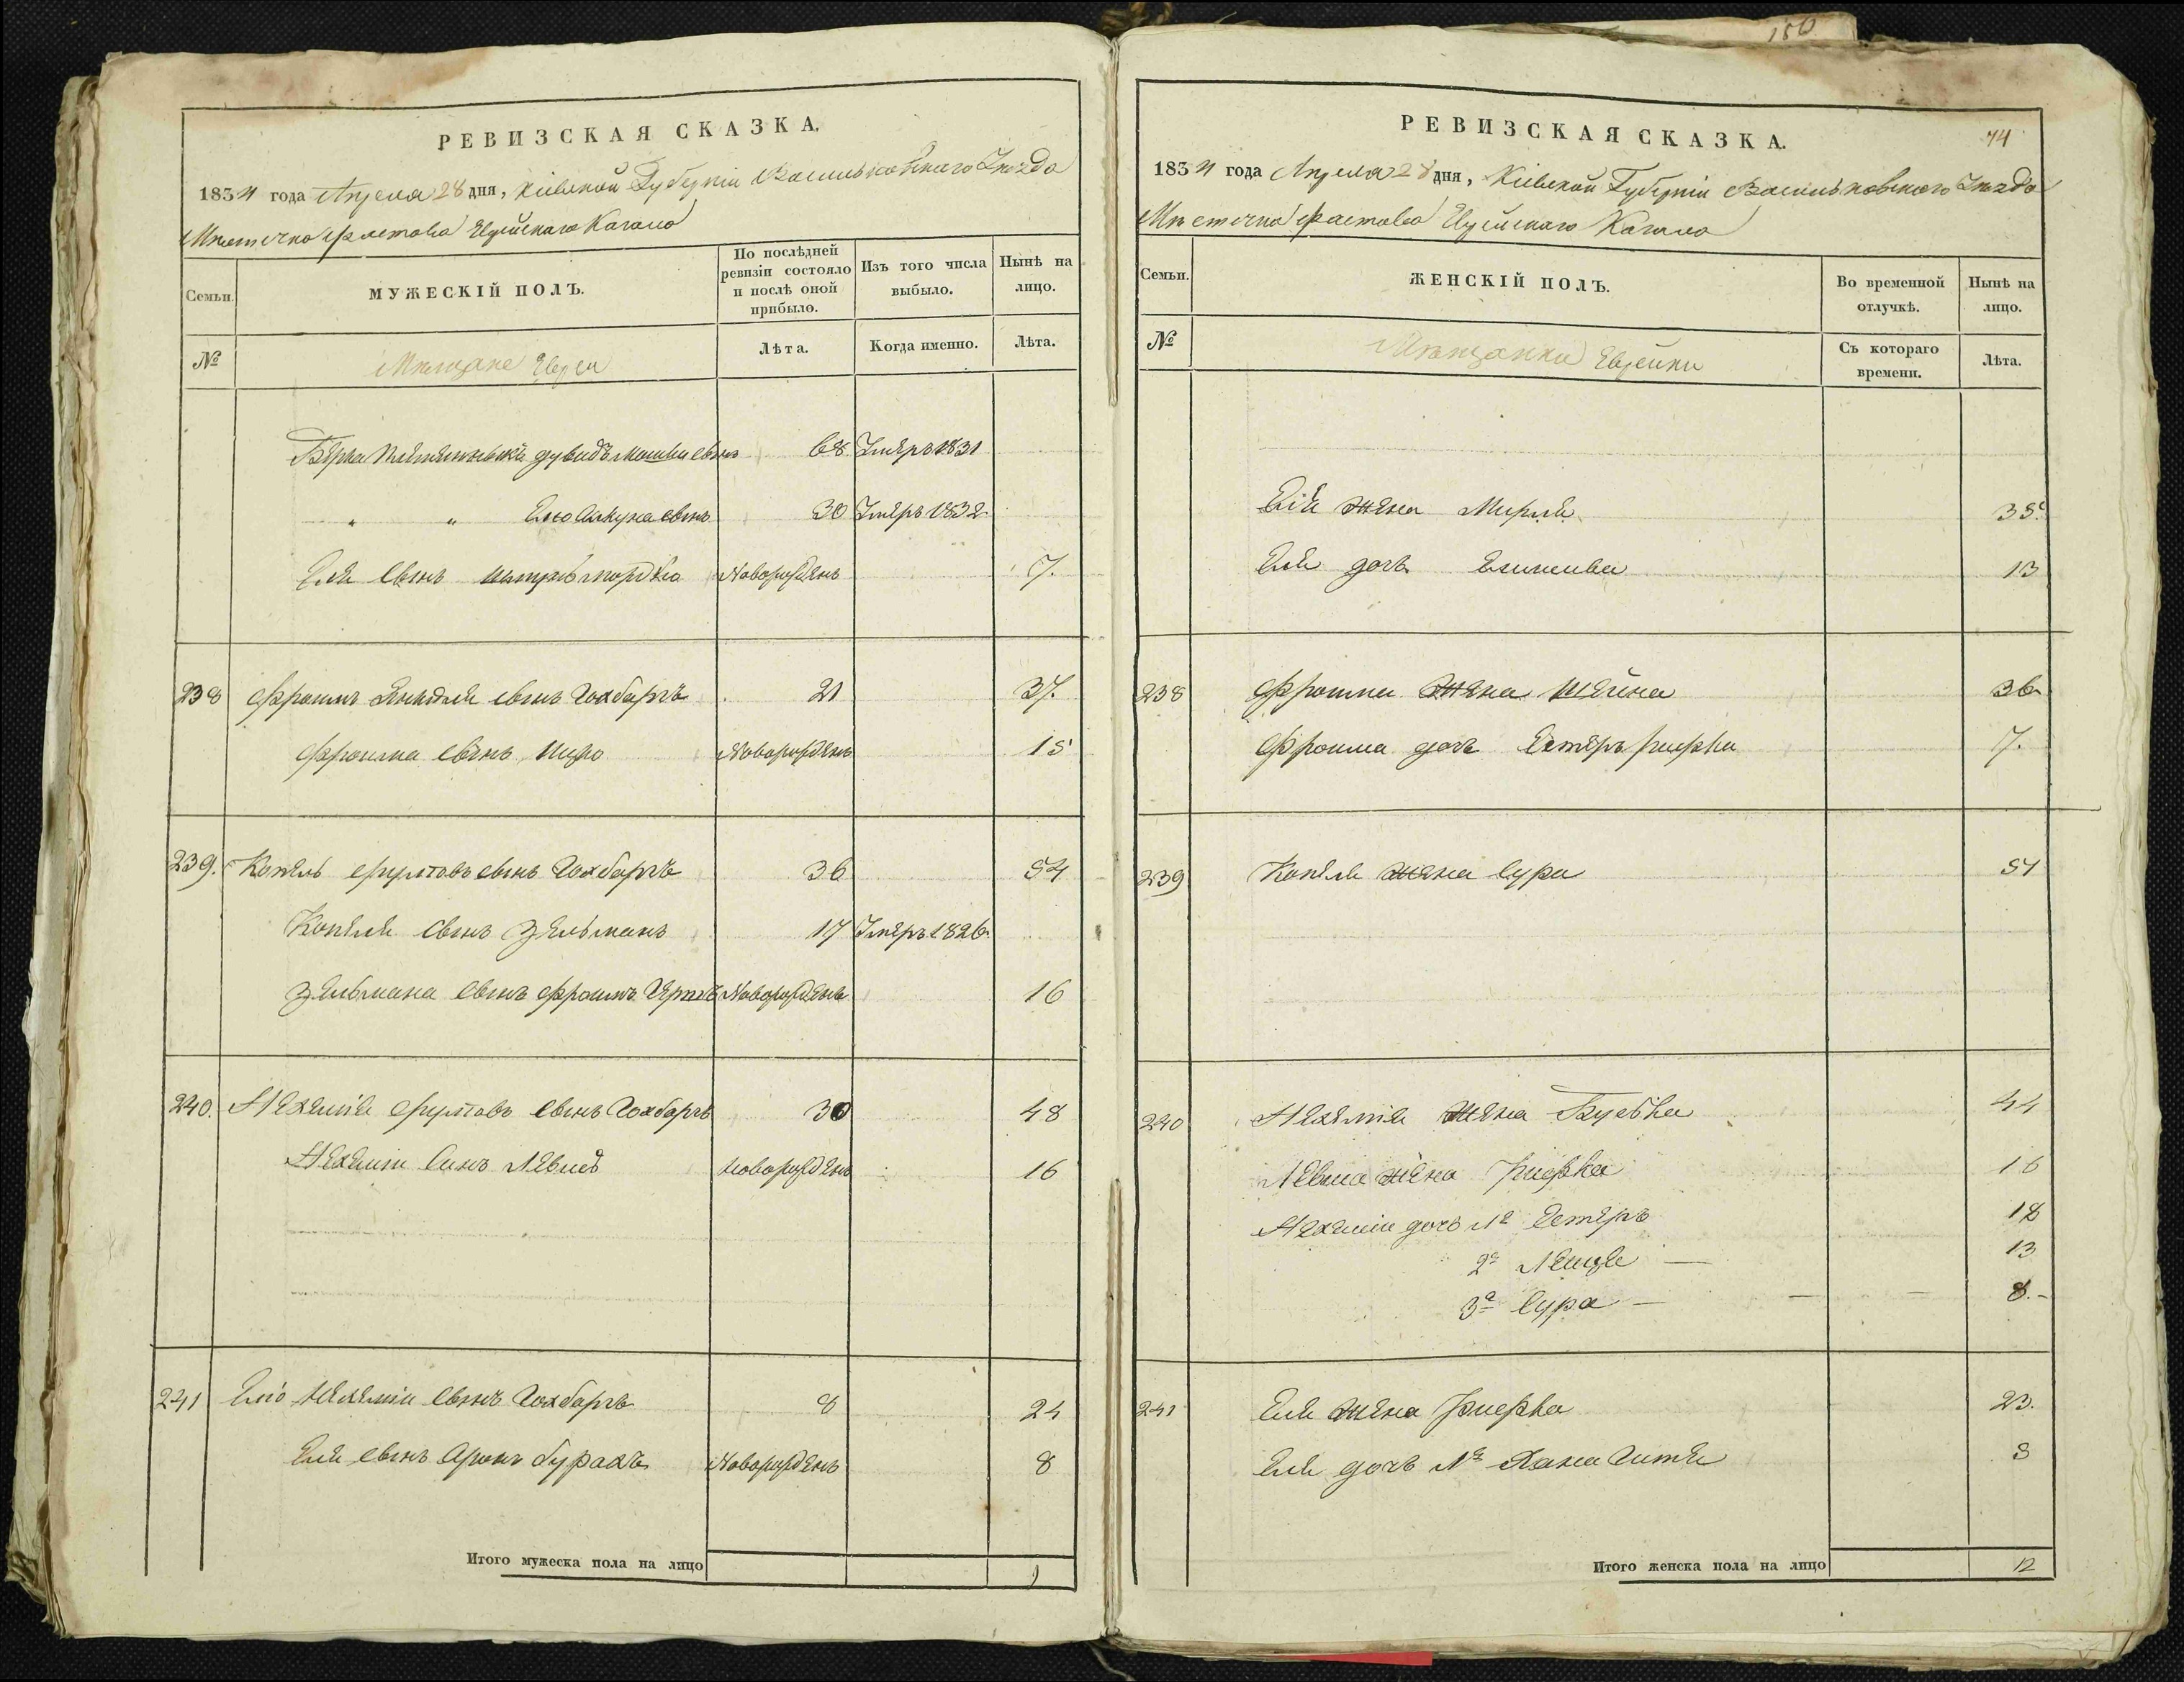 РЕВИЗСКАЯ СКАЗКА.
1834 года Апреля 28 дня, Кіевской Губерніи Васильковскаго Уезда
Местечка Фастова Еврейскаго Кагала
Семьи.
МУЖЕСКІЙ ПОЛЪ.
По послѣдней ревизіи состояло и послѣ оной прибыло.
Изъ того числа выбыло.
Нынѣ на лицо.
№
Мещане Евреи
Лѣта.
Когда именно.
Лѣта.
Берка Дувидъ Мошка сынъ 68 Умеръ 1831
" " 30 Умеръ 1832
Еля сынъ Новорожденъ 7.
238 Фроимъ сынъ Гохбаргъ 21 37.
Фроима сынъ Новорожденъ 15
239. Копель сынъ Гохбаргъ 36 54
Копеля сынъ Зельманъ 17 Умеръ 1826
Зельмана сынъ Фроимъ Герш Новорожденъ 16
240. Нехемія сынъ Гохбаргъ 30 48
Нехеміи синъ Новорожденъ 16
241 Еліо Нехеміи сынъ Гохбаргъ 8 24
Еля сынъ Аронъ Бурахъ Новорожденъ 8
Итого мужеска пола на лицо
150
РЕВИЗСКАЯ СКАЗКА.
74
1834 года Апреля 28 дня, Кіевской Губерніи Васильковского Уезда
Местечка Фастова Еврейскаго Кагала
Семьи.
ЖЕНСКІЙ ПОЛЪ.
Во временной отлучкѣ.
Нынѣ на лицо.
№
Мещанки Еврейки
Съ котораго времени.
Лѣта.
жена Мирля 35
Еля дочь 13
238 Фроима жена Шейна 36
Фроима дочь Естеръ Рифка 7.
239 Копеля жена Сура 51
240 Нехемія жена 44
жена Рифка 16
Нехеміи дочь 1я Естеръ 18
2я 13
3я Сура 8.
241 Еля жена Рифка 23.
Еля дочь 1я Хана Гитя
Итого женска пола на лицо 12